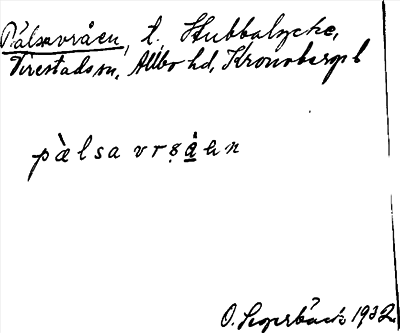 Pålsavråen, t. Stubbalycke,
Virestads sn, Allbo hd, Kronobergs l
pàlsa vrṣå̀en
O. Segerbäck 1932